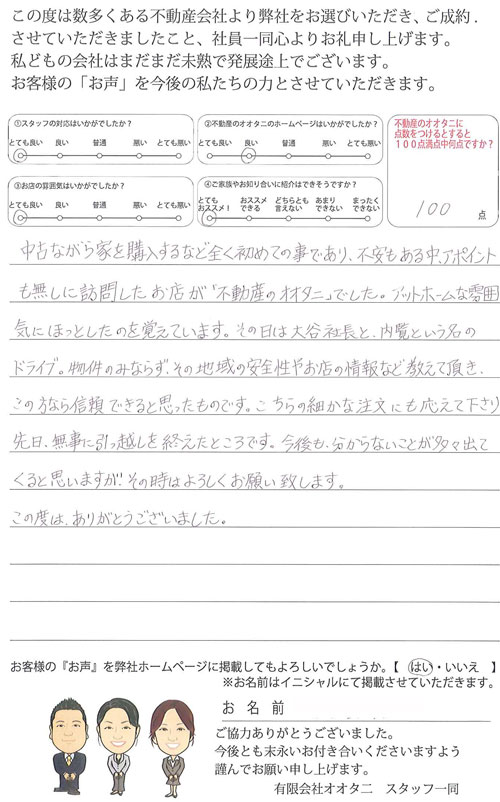 この度は数多くある不動産会社より弊社をお選びいただき、ご成約.
させていただきましたこと、社員一同心よりお礼申し上げます。
私どもの会社はまだまだ未熟で発展途上でございます。
お客様の「お声」を今後の私たちの力とさせていただきます。
①スタッフの対応はいかがでしたか？
とても良い 良い 普通 悪い とても悪い
②不動産のオオタニのホームページはいかがでしたか？
とても良い 良い 普通 悪い とても悪い
③お店の雰囲気はいかがでしたか？
とても良い 良い 普通 悪い とても悪い
④ご家族やお知り合いに紹介はできそうですか？
とても オススメ どちらとも あまり まったく
オススメ！ できる 言えない できない できない
不動産のオオタニに
点数をつけるとすると
１００点満点中何点ですか？
100 点
中古ながら家を購入するなど全く初めての事であり、不安もある中、アポイント
も無しに訪問したお店が「不動産のオオタニ」でした。アットホームな雰囲
気にほっとしたのを覚えています。その日は大谷社長と、内覧という名の
ドライブ。物件のみならず、その地域の安全性やお店の情報など教えて頂き、
この方なら信頼できると思ったものです。こちらの細かな注文にも応えて下さり
先日、無事に引っ越しを終えたところです。今後も、分からないことが多々出て
くると思いますが、その時はよろしくお願い致します。
この度は、ありがとうございました。
お客様の『お声』を弊社ホームページに掲載してもよろしいでしょうか。【 はい・いいえ 】
※お名前はイニシャルにて掲載させていただきます。
お 名 前
ご協力ありがとうございました。
今後とも末永いお付き合いくださいますよう
謹んでお願い申し上げます。
有限会社オオタニ スタッフ一同